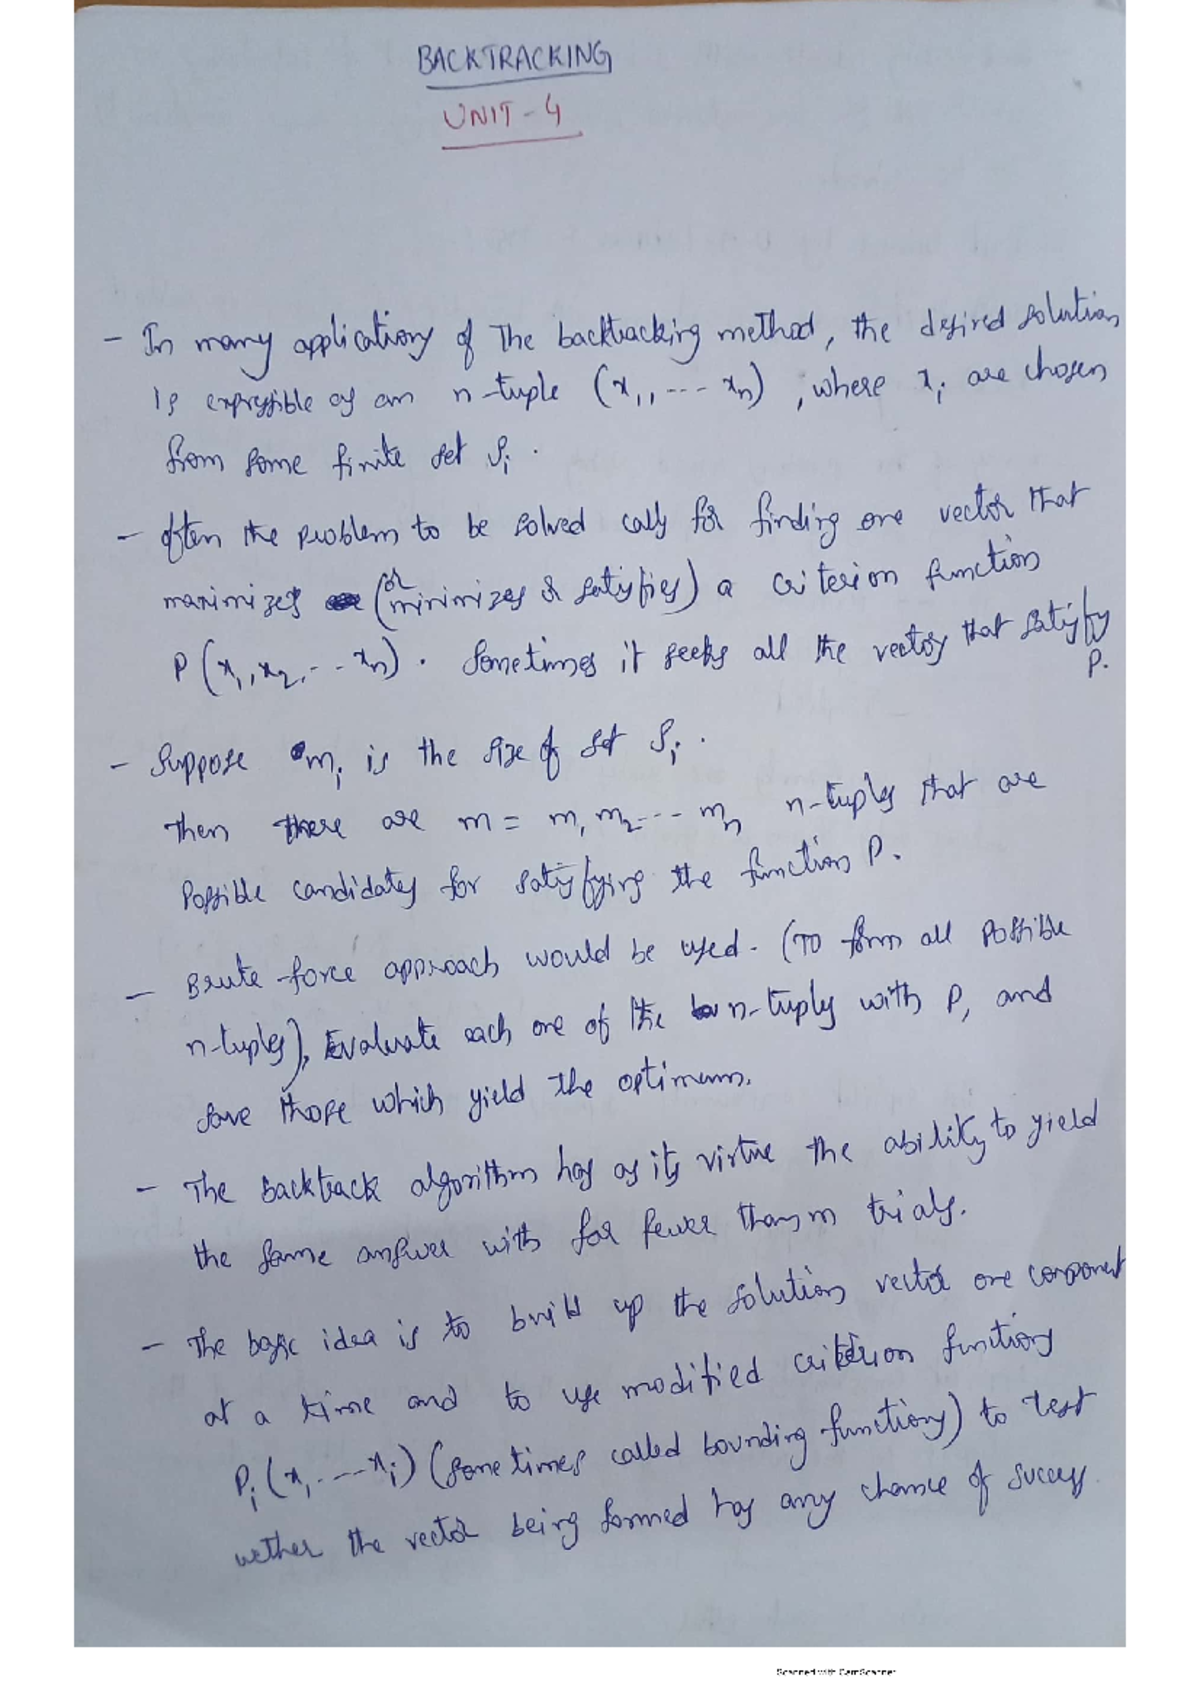 BACKTRACKING
UNIT-4
- In many applications of the backtracking method, the desired solution
is expressible as an n-tuple (x1, --- xn), where xi are chosen
from some finite set Si.
- often the problem to be solved calls for finding one vector that
maximizes (or minimizes & satisfies) a criterion function
P(x1, x2, -- xn). Sometimes it seeks all the vectors that satisfy
P.
- Suppose mi is the size of set Si.
Then there are m = m1 m2 --- mn n-tuples that are
Possible candidates for satisfying the function P.
- Brute-force approach would be used. (To form all possible
n-tuples), Evaluate each one of the n-tuples with P, and
save those which yield the optimum.
- The backtrack algorithm has as its virtue the ability to yield
the same answer with far fewer than m trials.
- The basic idea is to build up the solution vector one component
at a time and to use modified criterion functions
Pi(x1 --- xi) (sometimes called bounding functions) to test
wether the vector being formed has any chance of success.
Scanned with CamScanner